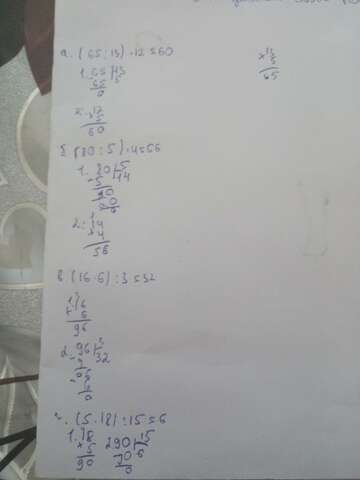 а. (65:13)·12=60
1. 65 13
65 5
0
2. 12
× 5
60
× 13
5
65
б (70:5)·4=56
1. 70 5
- 5 14
20
20
0
2. 14
× 4
56
в (16·6):3=32
1. 16
× 6
96
2. 96 3
- 9 32
6
- 6
0
г. (5·18):15=6
1. 18
× 5
90
2 90 15
90 6
0